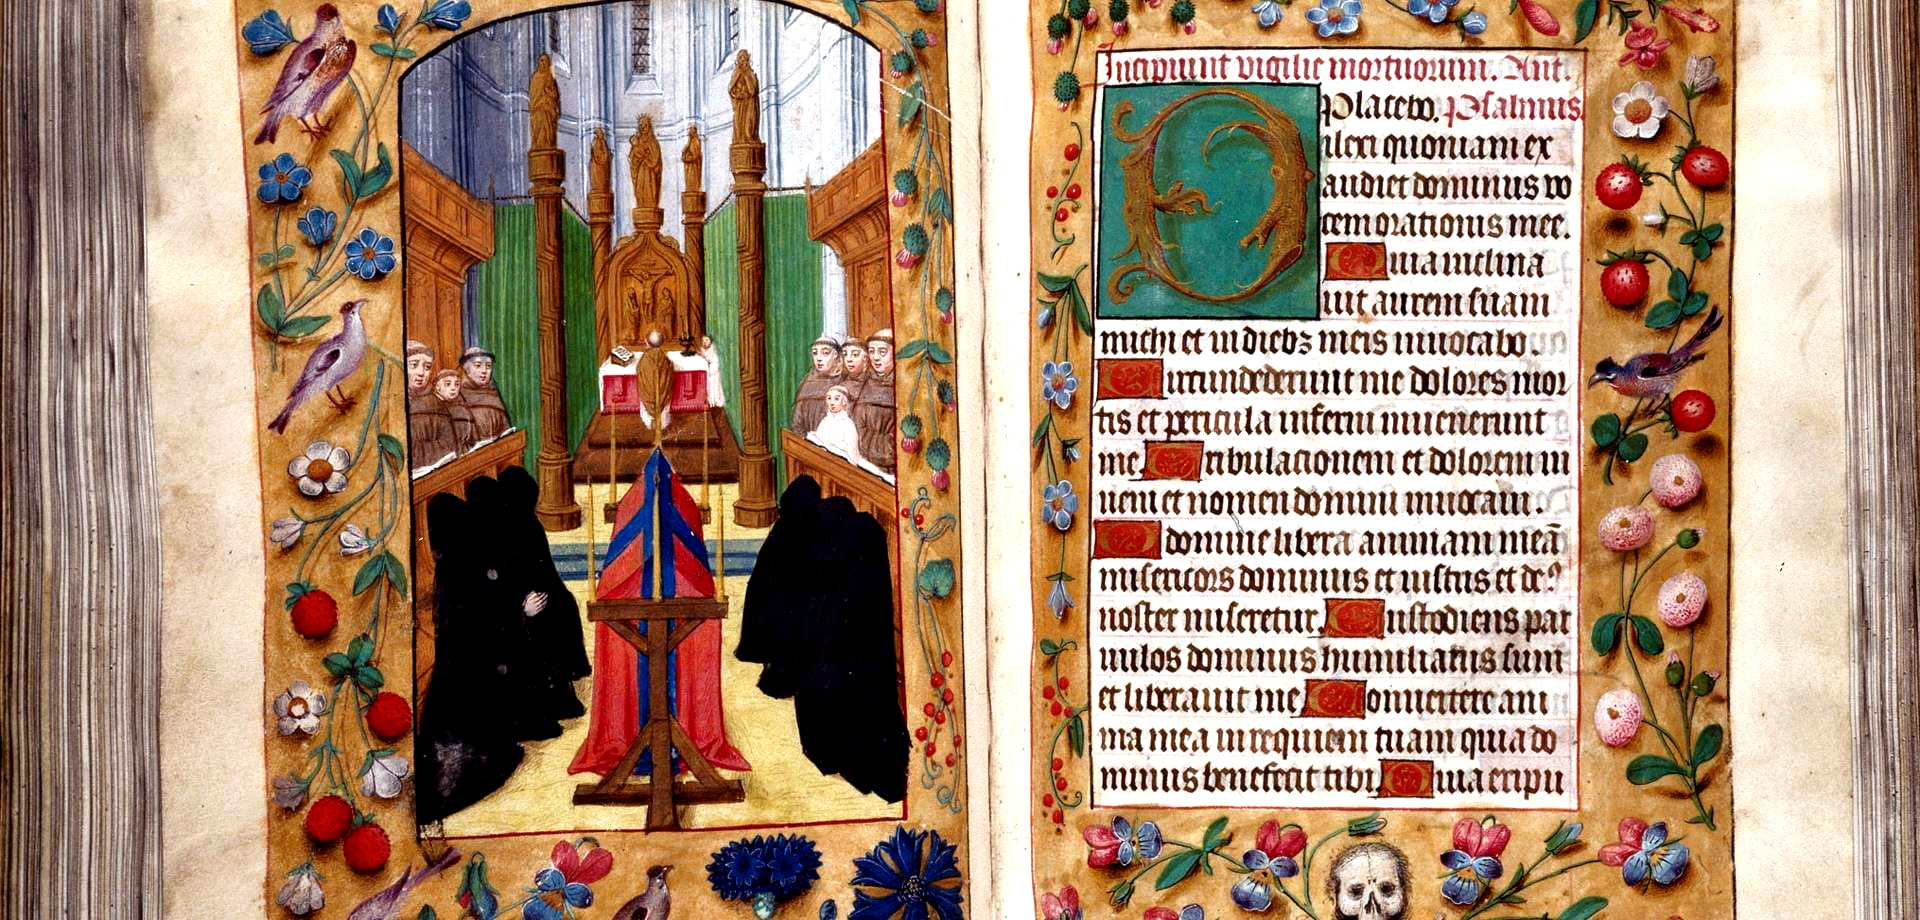 Incipiunt vigilie mortuorum. Ant.
Placebo. Psalmus
Dilexi quoniam ex
audiet dominus vo
cem orationis mee.
Quia inclina
uit aurem suam
michi et in diebz meis inuocabo.
Circundederunt me dolores mor
tis et pericula inferni inuenerunt
me Tribulacionem et dolorem in
ueni et nomen domini inuocaui.
O domine libera animam meā
misericors dominus et iustus et deꝰ
noster miseretur. Custodiens par
uulos dominus humiliatus sum
et liberauit me Conuertere ani
ma mea in requiem tuam quia do
minus benefecit tibi Quia eripu